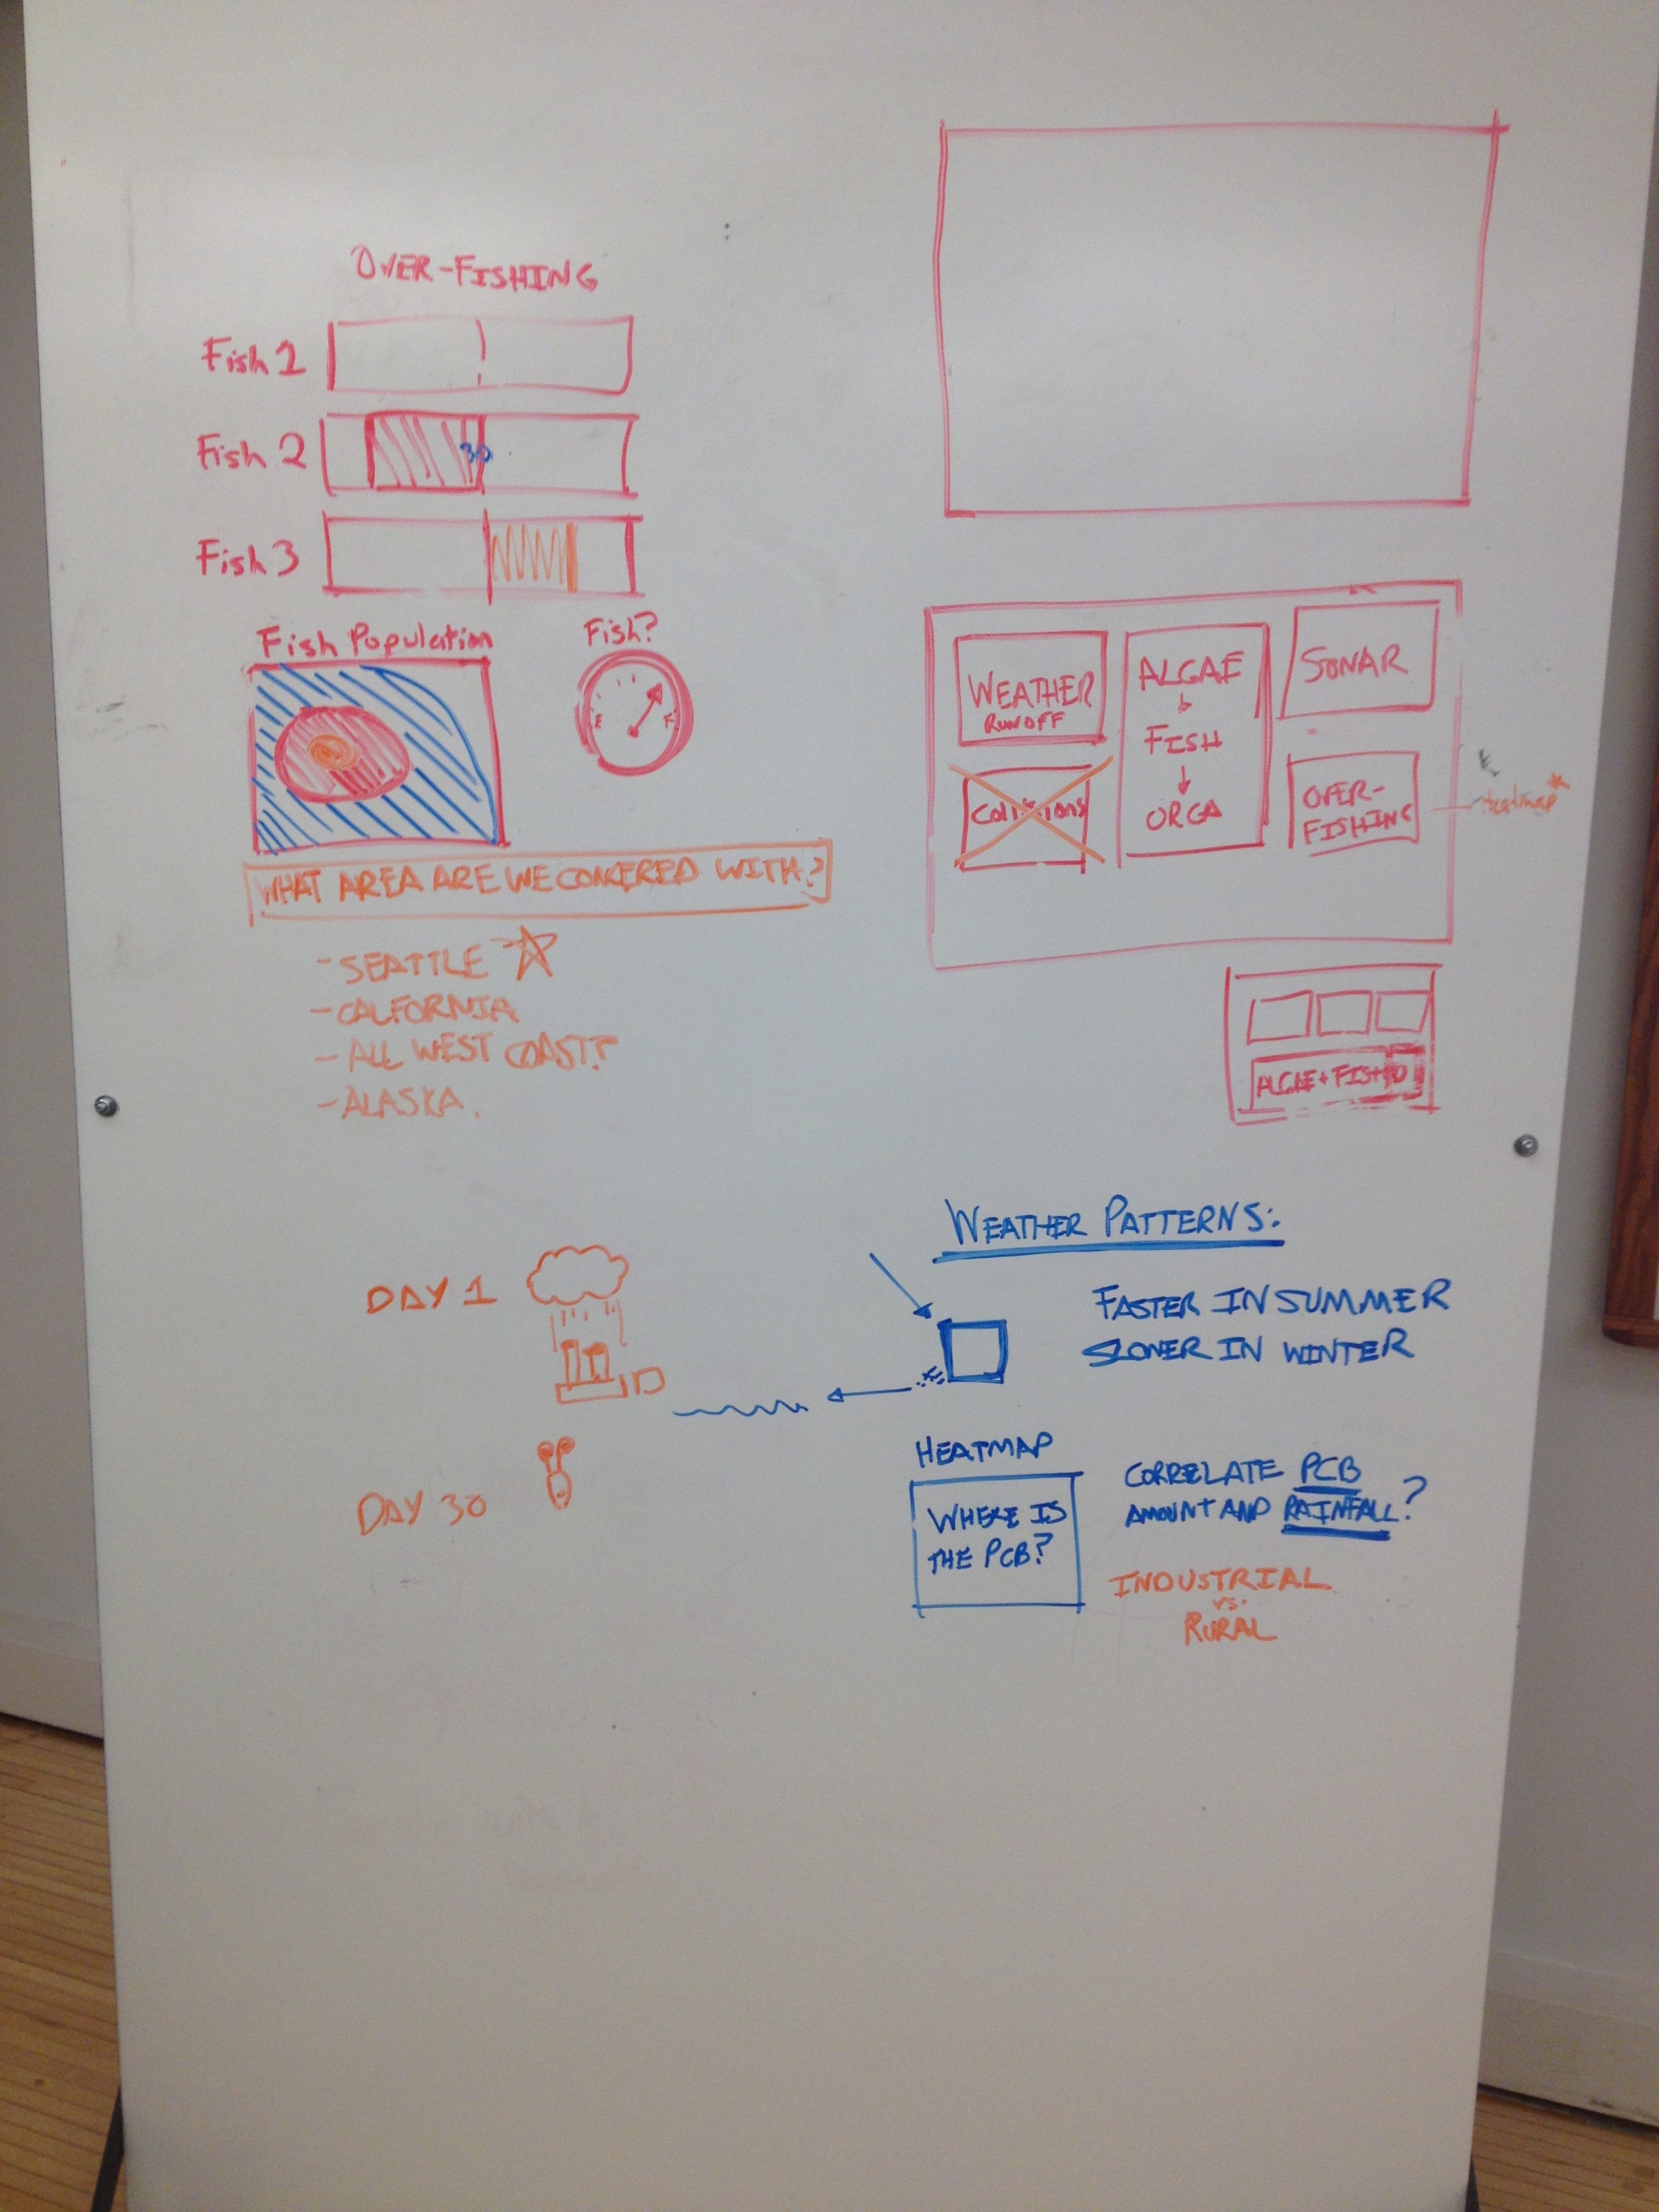 OVER-FISHING
Fish 1
Fish 2
30
Fish 3
Fish Population
Fish?
E F
WHAT AREA ARE WE CONCERED WITH?
- SEATTLE
- CALFORNIA
- ALL WEST COAST?
- ALASKA.
WEATHER
RUNOFF
ALGAE
FISH
ORCA
SONAR
Collisions
OVER-
FISHING
Heatmap*
ALGAE + FISH
DAY 1
DAY 30
WEATHER PATTERNS:
FASTER IN SUMMER
SLOWER IN WINTER
HEATMAP
WHERE IS
THE PCB?
CORRELATE PCB
AMOUNT AND RAINFALL?
INDUSTRIAL
vs.
RURAL